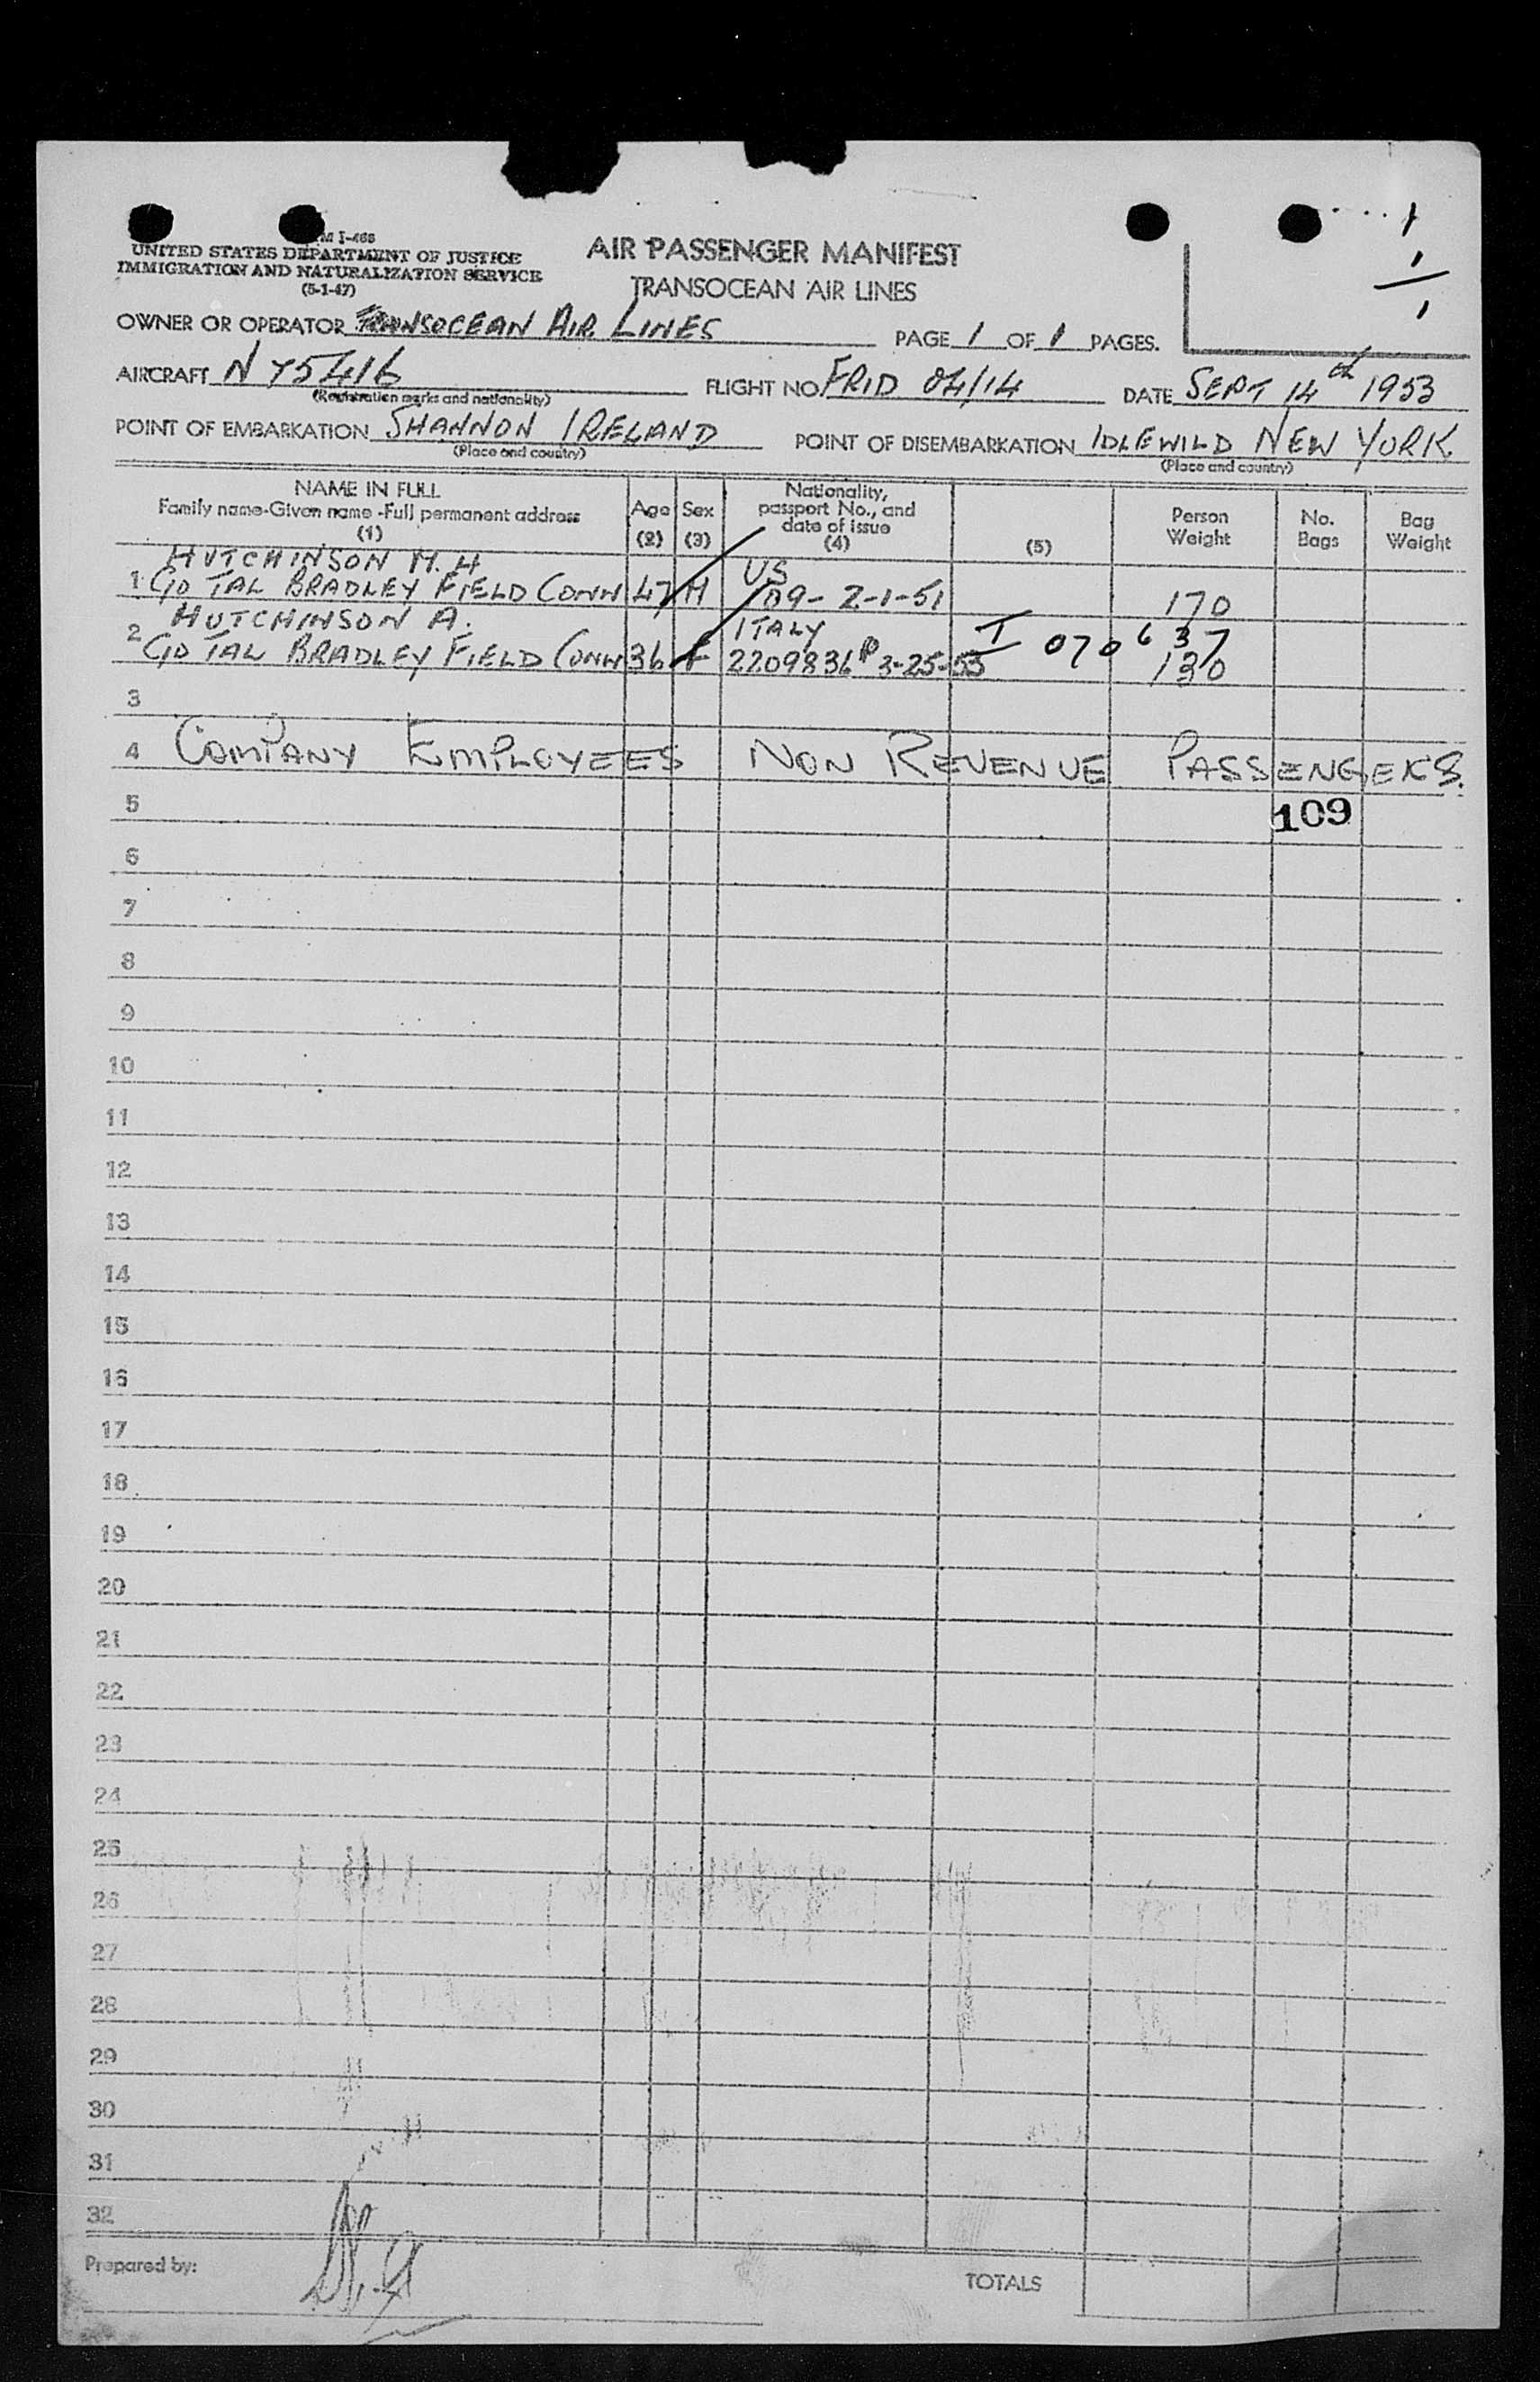 M I-466
UNITED STATES DEPARTMENT OF JUSTICE
IMMIGRATION AND NATURALIZATION SERVICE
(5-1-47)
AIR PASSENGER MANIFEST
TRANSOCEAN AIR LINES
1
1
1
OWNER OR OPERATOR TRANSOCEAN AIR LINES PAGE 1 OF 1 PAGES.
AIRCRAFT N 75416 FLIGHT NO. FRID 04/14 DATE SEPT 14th 1953
(Registration marks and nationality)
POINT OF EMBARKATION SHANNON IRELAND POINT OF DISEMBARKATION IDLEWILD NEW YORK
(Place and country) (Place and country)
NAME IN FULL
Family name-Given name -Full permanent address
(1)
Age
(2)
Sex
(3)
Nationality,
passport No., and
date of issue
(4)
(5)
Person
Weight
No.
Bags
Bag
Weight
HUTCHINSON M. H US
1 C/O TAL BRADLEY FIELD CONN 47 M 109- 2-1-51 170
HUTCHINSON A. ITALY I 070637
2 C/O TAL BRADLEY FIELD CONN 36 F 2209836 P 3-25-53 130
3
4 COMPANY EMPLOYEES NON REVENUE PASSENGERS.
5 109
6
7
8
9
10
11
12
13
14
15
16
17
18
19
20
21
22
23
24
25
26
27
28
29
30
31
32
Prepared by:
TOTALS